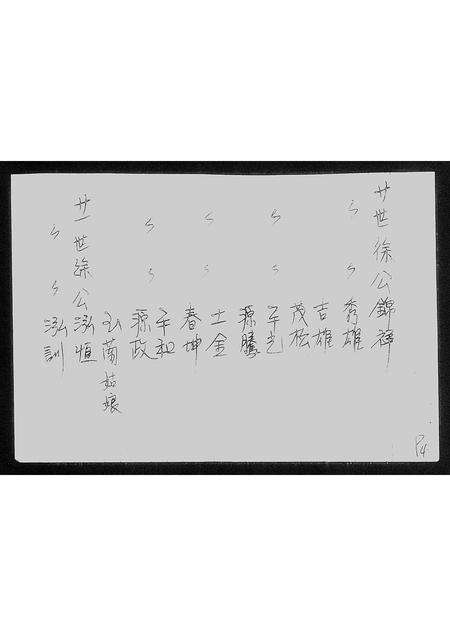 廿世徐公錦祥
〃 〃 秀雄
吉雄
茂松
〃 〃 平光
源騰
〃 〃 士金
春坤
平和
〃 〃 源政
弘蘭姑娘
廿一世徐公泓恒
〃 〃 泓訓
P4